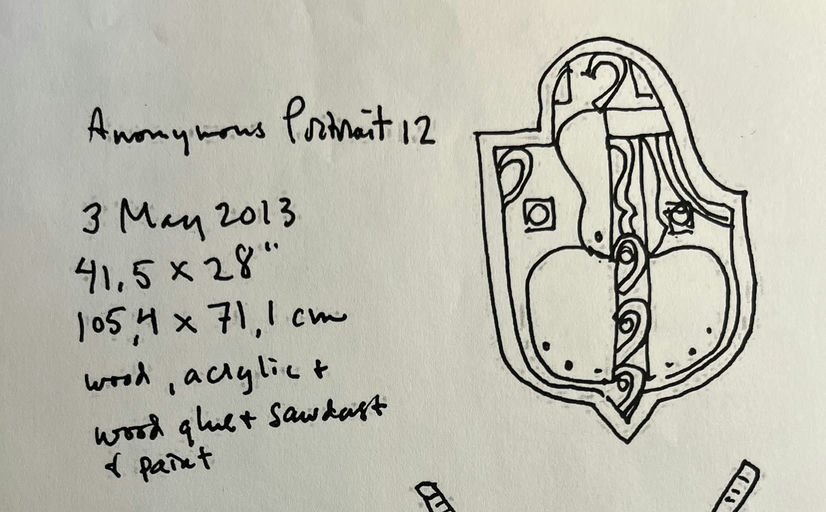 Anonymous Portrait 12
3 May 2013
41,5 x 28"
105,4 x 71,1 cm
wood, acrylic +
wood glue + sawdust
& paint